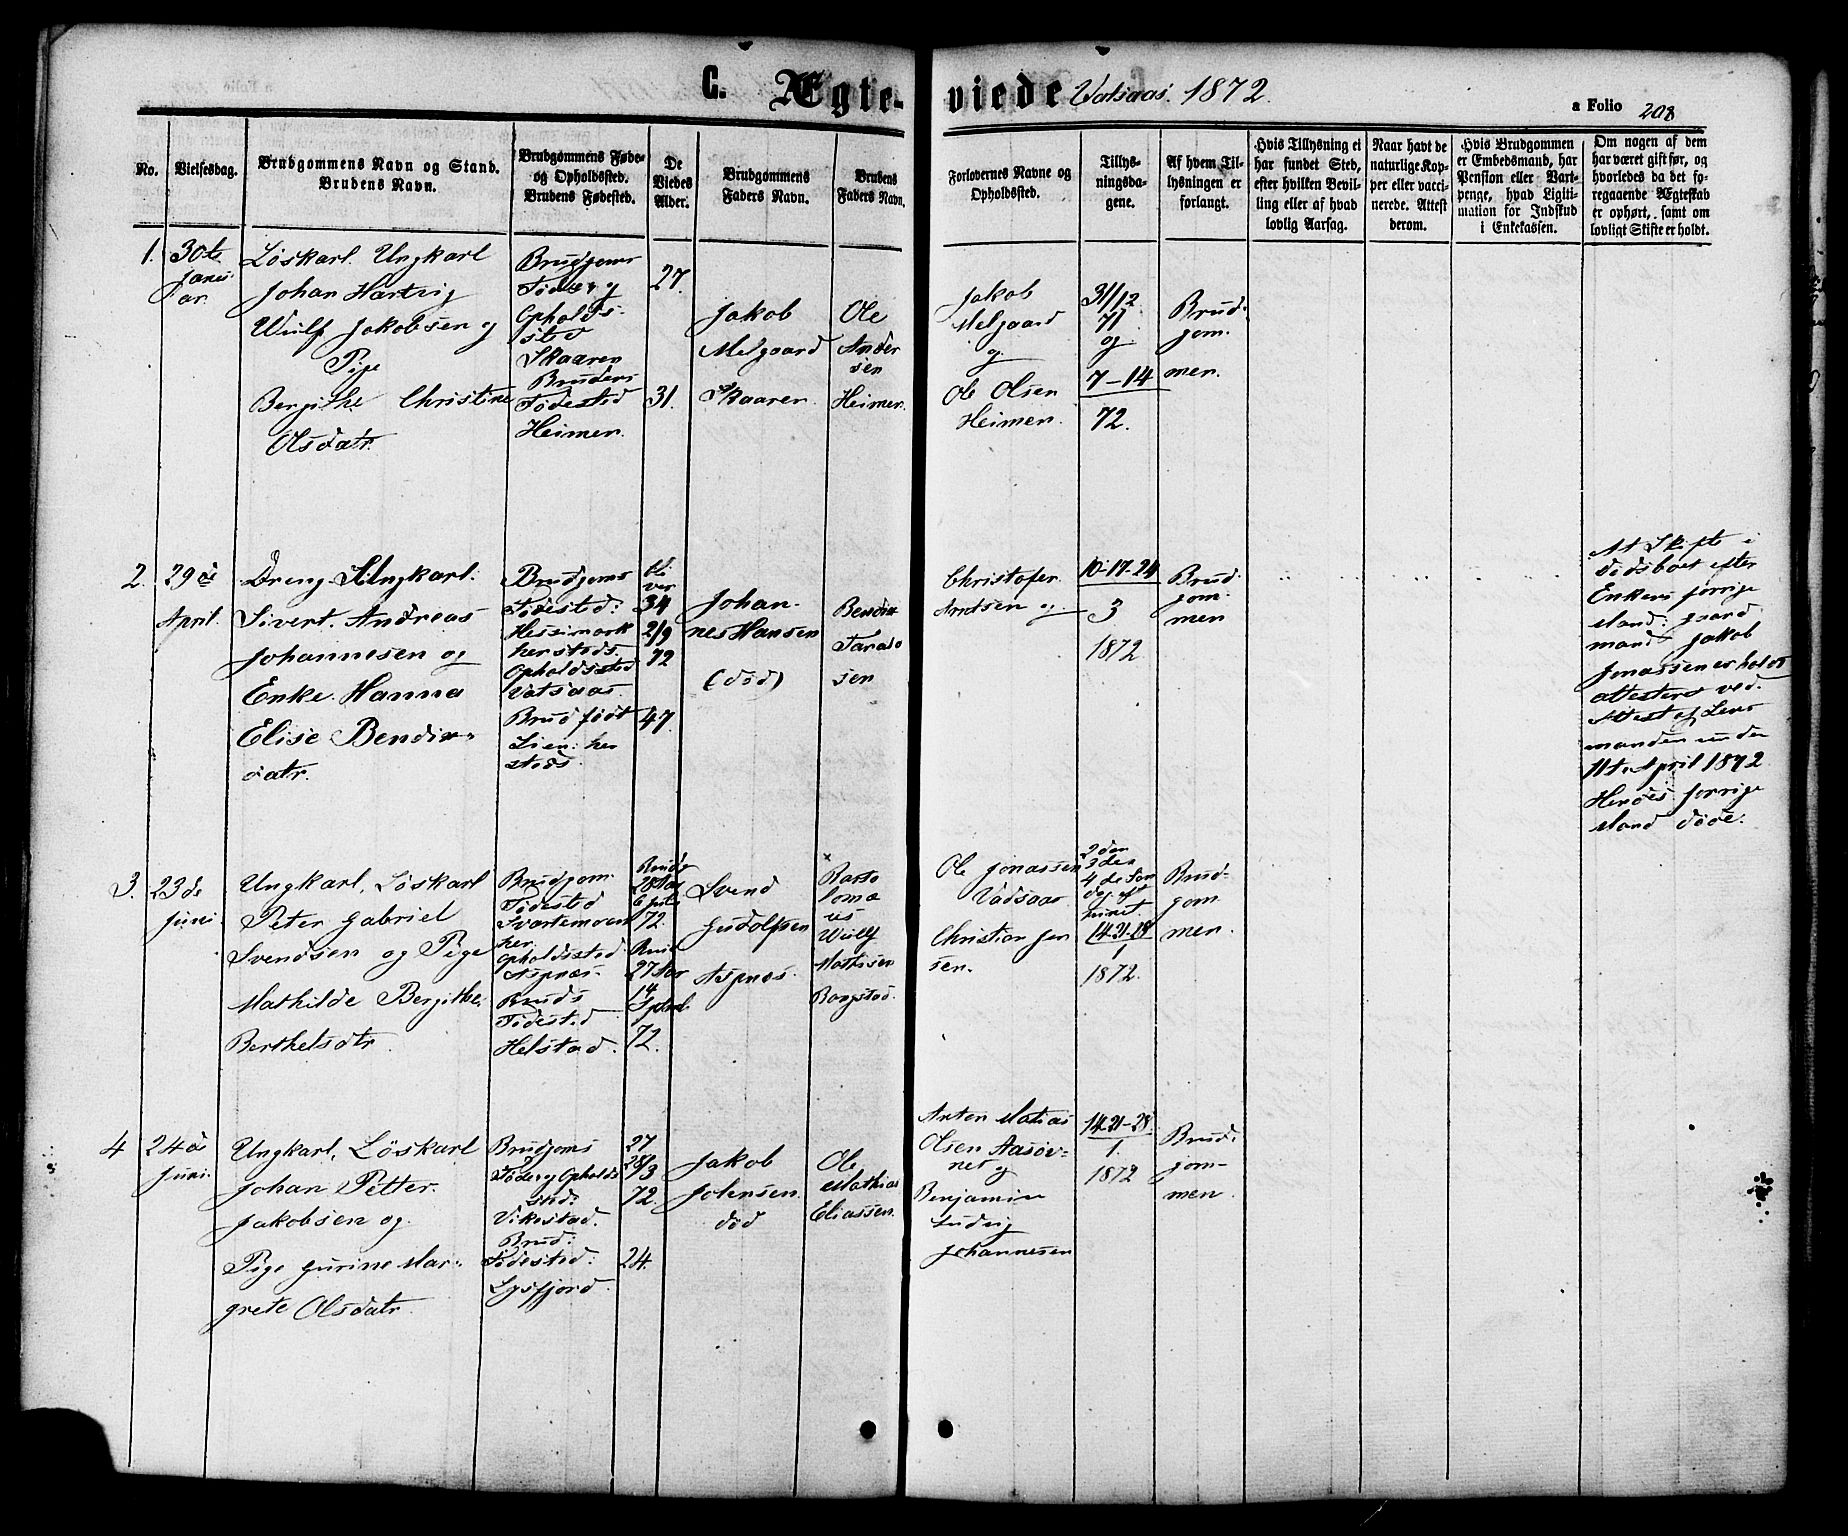 C. Ægte-viede Vatsaas. 1872.
a Folio 208
No.
Vielsesdag.
Brudgommens Navn og Stand.
Brudens Navn.
Brudgommens Føde-
og Opholdssted.
Brudens Fødested.
De
Viedes
Alder.
Brudgommens
Faders Navn.
Brudens
Faders Navn.
Forlovernes Navne og
Opholdssted.
Tillys-
ningsda-
gene.
Af hvem Til-
lysningen er
forlangt.
Hvis Tillysning ei
har fundet Sted,
efter hvilken Bevil-
ling eller af hvad
lovlig Aarsag.
Naar havt de
naturlige Kop-
per eller vacci-
nerede. Attest
derom.
Hvis Brudgommen
er Embedsmand, har
Pension eller Vart-
penge, hvad Ligiti-
mation for Indskud
i Enkekassen.
Om nogen af dem
har været gift før, og
hvorledes da det fo-
regaaende Ægteskab
er ophørt, samt om
lovligt Skifte er holdt.
1.
30te
Janu
ar.
Løskarl. Ungkarl
Johan Hartvig
Wulf Jakobsen og
Pige
Bergithe Christine
Olsdatr.
Brudgoms
Føde og
Opholds-
sted
Skaaren
Brudens
Fødested
Heimen.
27.
31.
Jakob
Melgaard
Skaaren
Ole
Ander
sen
Heimen.
Jakob
Melgaard
og
Ole Olsen
Heimen.
31/12
71
og
7-14
72.
Brud-
gom-
men.
2.
29de
April.
Dreng Ungkarl.
Sivert. Andreas
Johannesen og
Enke. Hanna
Elise Bendix-
datr.
Brudgoms
Fødested:
Hessimark
hersteds.
Opholdssted
Vatsaas.
Brud født
Lien: her
steds.
bli
ver
34
2/9
72
47.
Johan-
nes Hansen
(død)
Bendix
sen
Christofer
Arntsen og
10-17-24
3
1872
Brud-
gom-
men
At Skifte i
dødsboet efter
Enkens forrige
Mand: gaard
mand Jakob
Jonassen er holdt
attesteres ved.
Attest af Lens
manden under
11te April 1872
Hendes forrige
Mand døde.
3.
23de
Juni.
Ungkarl, Løskarl
Peter Gabriel
Svendsen og Pige
Mathilde Bergithe
Berthelsdtr.
Brudgom.
Fødested
Svartemoen
her.
Opholdssted
Aspnæs.
Bruds
Fødested
Helstad.
28 Aar
72.
27 Aar
14
72.
Svend
Gudolfsen
Aspnæs.
Barto
lomæ
us
Wulf
Mathisen
Borgstad.
Ole Jonassen
Vadsaas
Christian Jen
sen.
2den
3den
4de Søn
dag eft
14-21-28
1
1872.
Brud-
gom-
men.
4
24de
Juni.
Ungkarl, Løskarl
Johan Petter.
Jakobsen og
Pige Gurine Mar-
grete Olsdatr.
Brudgoms
Føde og Opholds
sted:
Vikestad.
Brud:
Fødested:
Lysfjord.
27
28/3
72.
24.
Jakob
Johnsen.
død
Ole
Mathias
Eliassen.
Anton Matias
Olsen Aasøv-
net og
Benjamin
Ludvig
Johannesen
14-21-28.
1.
1872
Brud-
gom-
men.